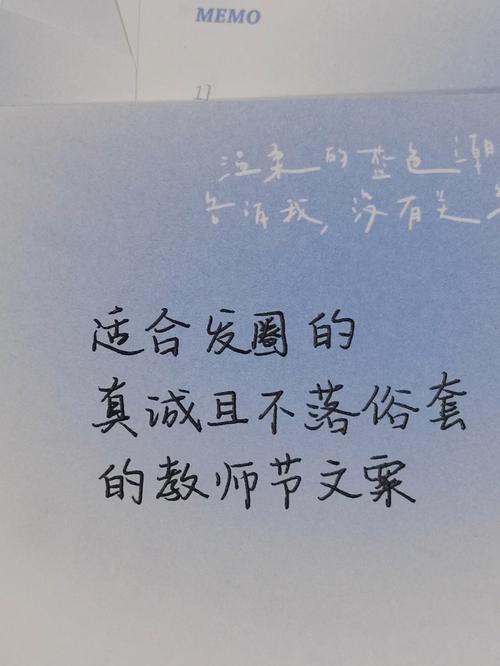 MEMO
1}
温柔的蓝色潮
告诉我，没有关
适合发圈的
真诚且不落俗套
的教师节文案